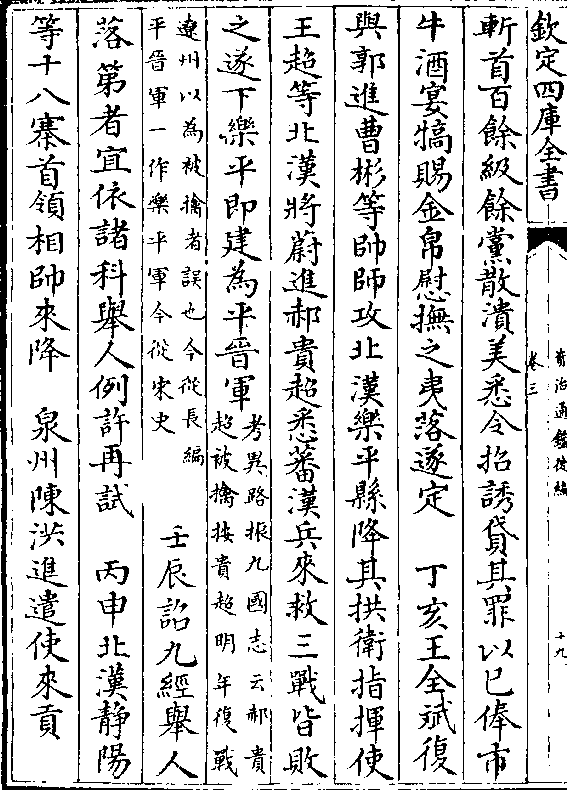 欽定四庫全書
資治通鑑後編
卷三
十九
斬首百餘級餘黨散潰美悉令招誘貸其罪以已俸市
牛酒宴犒賜金帛慰撫之夷落遂定　丁亥王全斌復
與郭進曹彬等帥師攻北漢樂平縣降其拱衛指揮使
王超等北漢將蔚進郝貴超悉蕃漢兵來救三戰皆敗
之遂下樂平即建為平晉軍
考異路振九國志云郝貴
超被擒按貴超明年復戰
遼州以為被擒者誤也今從長編
平晉軍一作樂平軍今從宋史
壬辰詔九經舉人
落第者宜依諸科舉人例許再試　丙申北漢靜陽
等十八寨首領相帥來降　泉州陳洪進遣使來貢